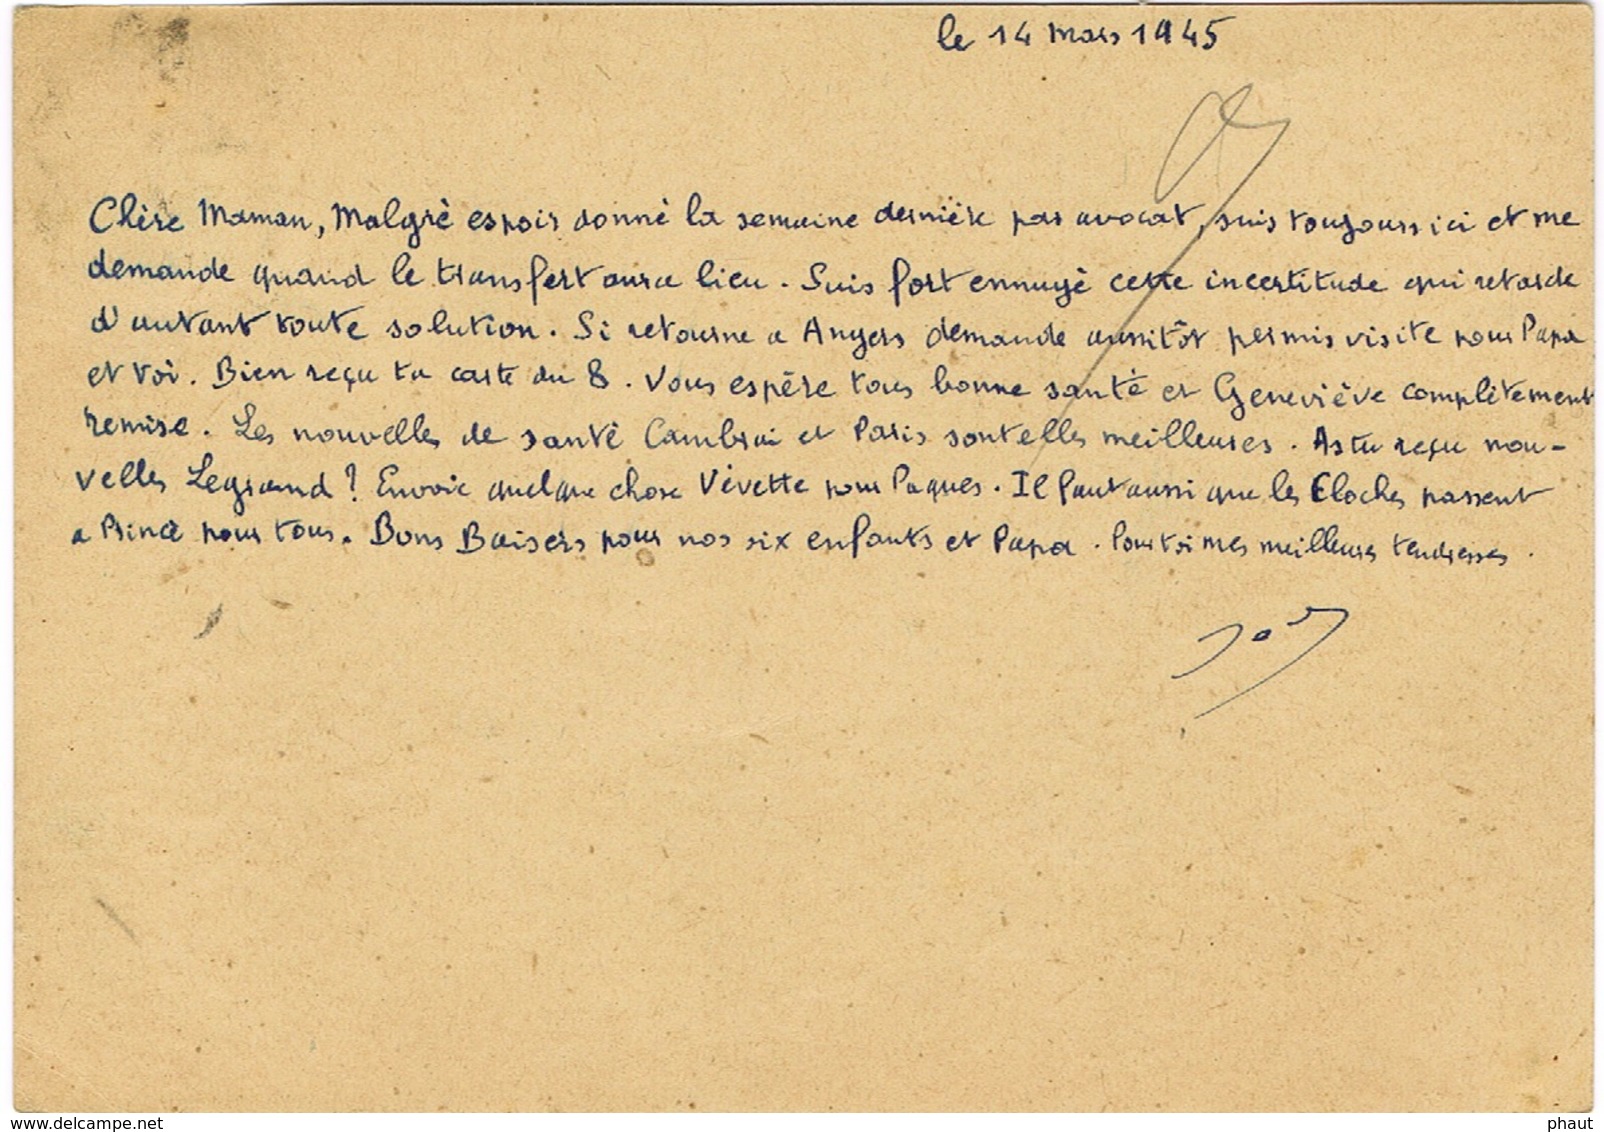 le 14 mars 1945
Chère Maman, Malgrè espoir donnè la semaine dernière par avocat, suis toujours ici et me
demande quand le transfert aura lieu. Suis fort ennuyè cette incertitude qui retarde
d'autant toute solution. Si retourne a Angers demande aussitôt permis visite pour Papa
et toi. Bien reçu ta carte du 8. Vous espère tous bonne santè et Geneviève complètement
remise. Les nouvelles de santè Cambrai et Paris sont elles meilleures. As tu reçu nou-
velles Legrand ? Envoie quelque chose Vèvette pour Paques. Il faut aussi que les Cloches passent
a Princé pour tous. Bons Baisers pour nos six enfants et Papa. Pour toi mes meilleures tendresses.
delcampe.net
phaut